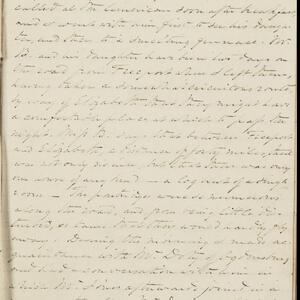 called at the American soon after breakfast
and I went with him first to see his daugh-
ter, and then to a smelting furnace. Mr.
B. and his daughter have been two days on
the road from Freeport where I left them,
having taken a somewhat circuitous route,
by way of Elizabeth that they might have
a comfortable place at which to pass the
night. Miss B. says that between Freeport
and Elizabeth, a distance of forty miles, there
was not only no inn, but that there was only
one town of any kind — a log and a rough
room — the partridges were so numerous
along the road, and from being little
so tame that they would hardly fly
away. During the morning I made ac-
quaintance with Mr. of Ogdensburg,
and had a conversation with him in
which Mr. Jones afterwards joined in a